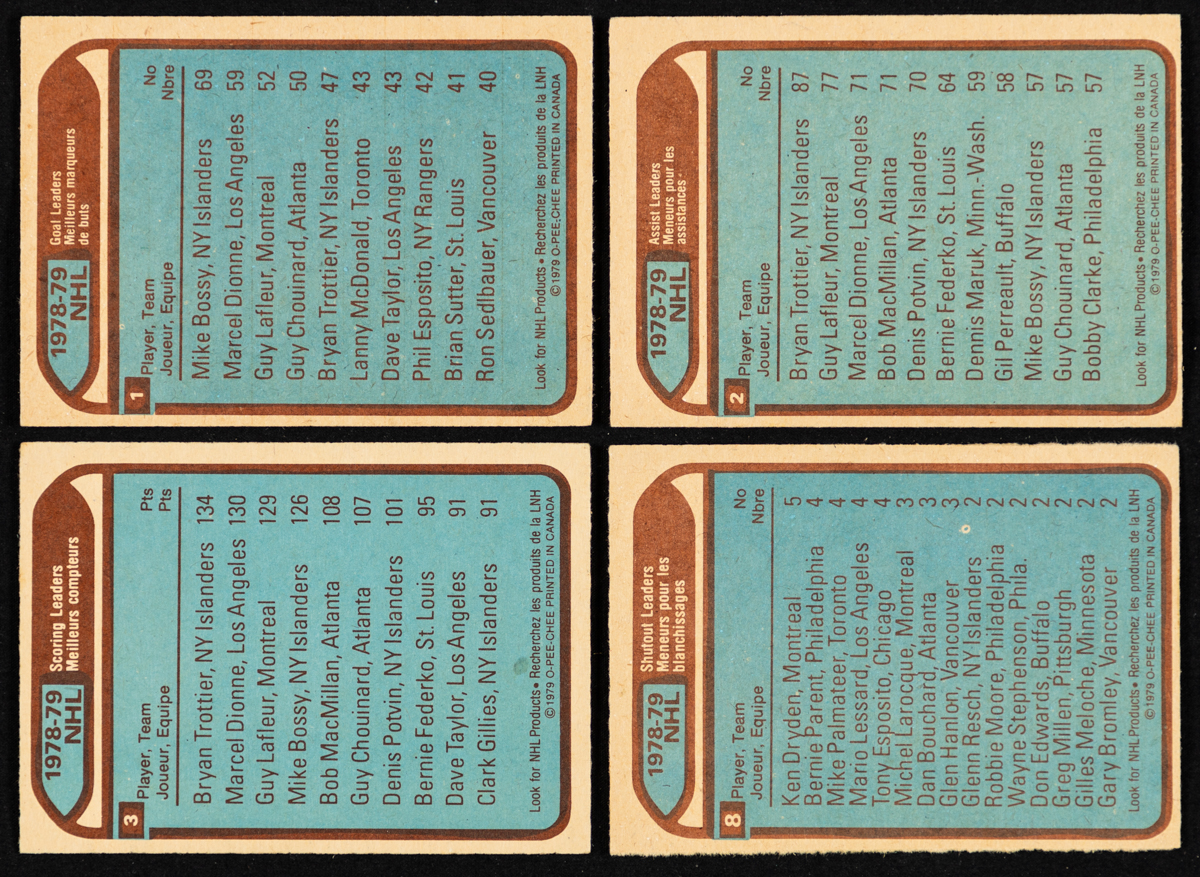 1978-79
NHL
Goal Leaders
Meilleurs marqueurs
de buts
1
Player, Team No
Joueur, Equipe Nbre
Mike Bossy, NY Islanders 69
Marcel Dionne, Los Angeles 59
Guy Lafleur, Montreal 52
Guy Chouinard, Atlanta 50
Bryan Trottier, NY Islanders 47
Lanny McDonald, Toronto 43
Dave Taylor, Los Angeles 43
Phil Esposito, NY Rangers 42
Brian Sutter, St. Louis 41
Ron Sedlbauer, Vancouver 40
Look for NHL Products • Recherchez les produits de la LNH
©1979 O-PEE-CHEE PRINTED IN CANADA
1978-79
NHL
Assist Leaders
Meneurs pour les
assistances
2
Player, Team No
Joueur, Equipe Nbre
Bryan Trottier, NY Islanders 87
Guy Lafleur, Montreal 77
Marcel Dionne, Los Angeles 71
Bob MacMillan, Atlanta 71
Denis Potvin, NY Islanders 70
Bernie Federko, St. Louis 64
Dennis Maruk, Minn.-Wash. 59
Gil Perreault, Buffalo 58
Mike Bossy, NY Islanders 57
Guy Chouinard, Atlanta 57
Bobby Clarke, Philadelphia 57
Look for NHL Products • Recherchez les produits de la LNH
©1979 O-PEE-CHEE PRINTED IN CANADA
1978-79
NHL
Scoring Leaders
Meilleurs compteurs
3
Player, Team Pts
Joueur, Equipe Pts
Bryan Trottier, NY Islanders 134
Marcel Dionne, Los Angeles 130
Guy Lafleur, Montreal 129
Mike Bossy, NY Islanders 126
Bob MacMillan, Atlanta 108
Guy Chouinard, Atlanta 107
Denis Potvin, NY Islanders 101
Bernie Federko, St. Louis 95
Dave Taylor, Los Angeles 91
Clark Gillies, NY Islanders 91
Look for NHL Products • Recherchez les produits de la LNH
©1979 O-PEE-CHEE PRINTED IN CANADA
1978-79
NHL
Shutout Leaders
Meneurs pour les
blanchissages
8
Player, Team No
Joueur, Equipe Nbre
Ken Dryden, Montreal 5
Bernie Parent, Philadelphia 4
Mike Palmateer, Toronto 4
Mario Lessard, Los Angeles 4
Tony Esposito, Chicago 4
Michel Larocque, Montreal 3
Dan Bouchard, Atlanta 3
Glen Hanlon, Vancouver 3
Glenn Resch, NY Islanders 2
Robbie Moore, Philadelphia 2
Wayne Stephenson, Phila. 2
Don Edwards, Buffalo 2
Greg Millen, Pittsburgh 2
Gilles Meloche, Minnesota 2
Gary Bromley, Vancouver 2
Look for NHL Products • Recherchez les produits de la LNH
©1979 O-PEE-CHEE PRINTED IN CANADA